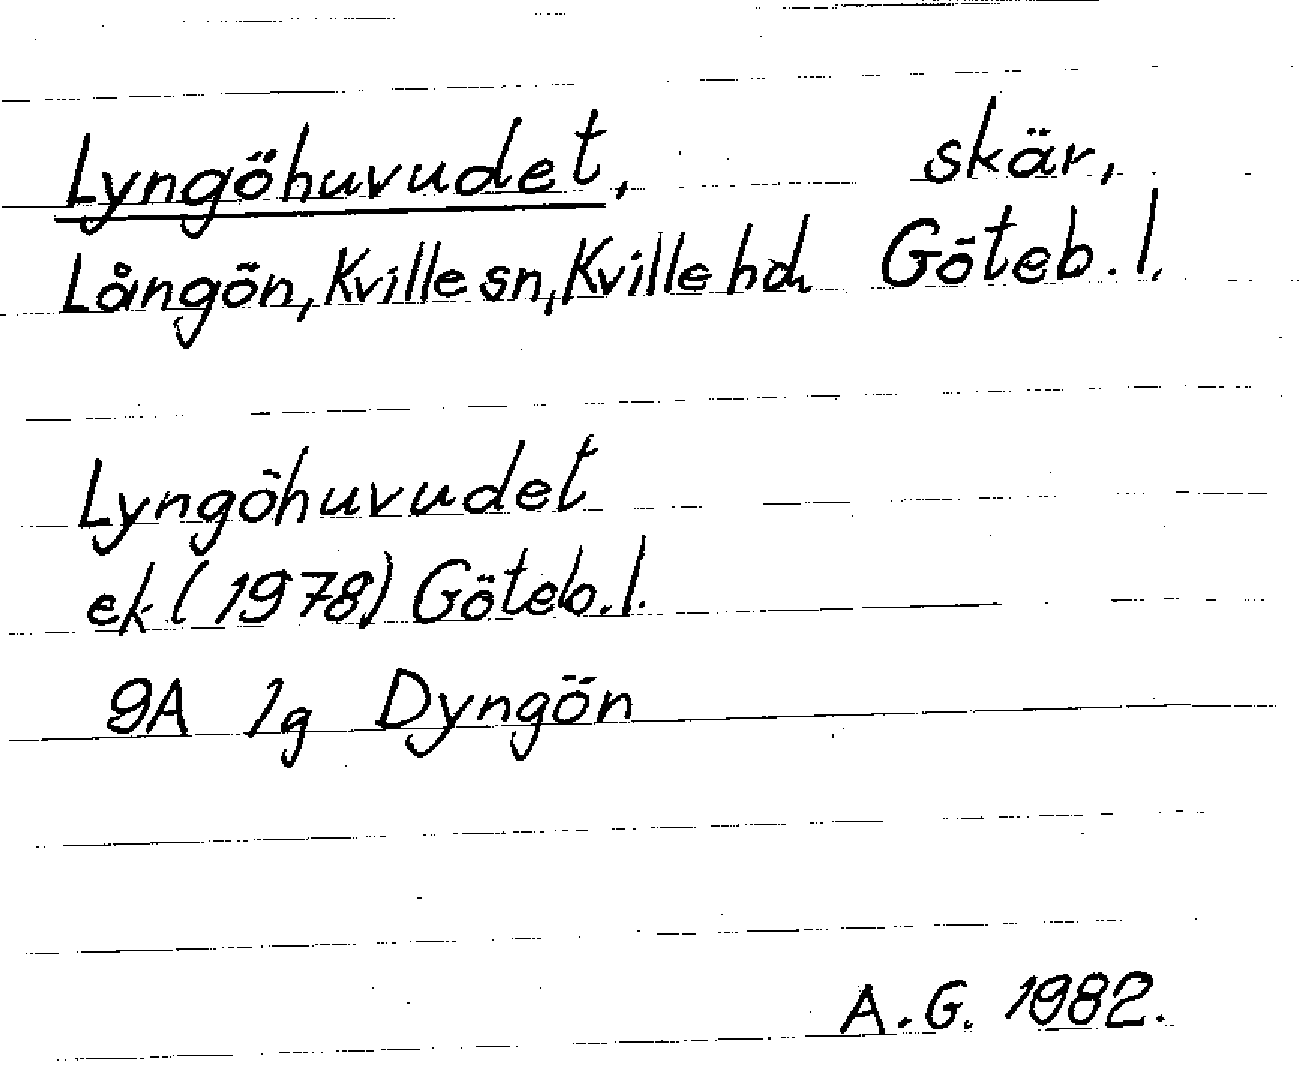 Lyngöhuvudet, skär,
Långön, Kville sn, Kville hd Göteb. l.
Lyngöhuvudet
ek (1978) Göteb. l.
9A 1g Dyngön
A.G. 1982.